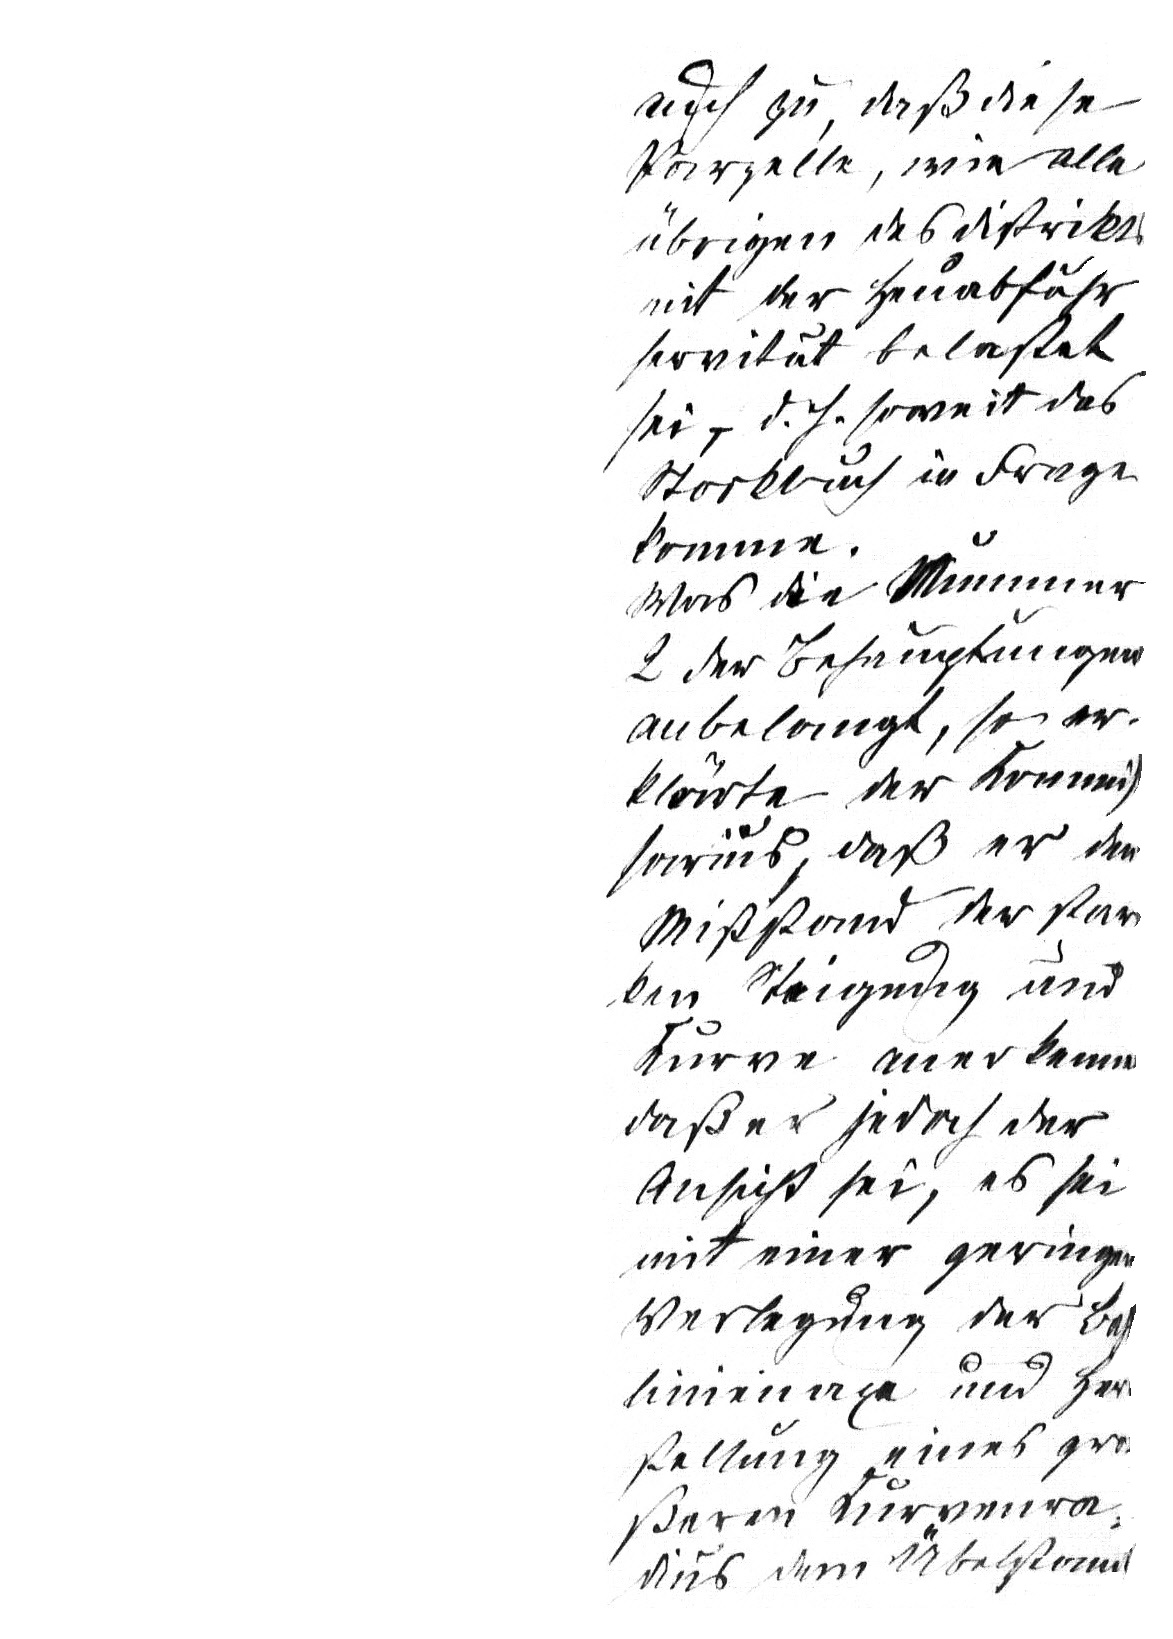 auch zu, daß diese
Parzelle, wie alle
übrigen des Distrikts
mit der Heuabfuhr
servitut belastet
sei, d. h. soweit das
Stockbuch in Frage
komme.
Was die Nummer
2 der Behauptungen
anbelangt, so er-
klärte der Kommis
sarius, daß er den
Mißstand der star
ken Steigung und
Kurve anerkenne
daß er jedoch der
Ansicht sei, es sei
mit einer geringen
Verlegung der Bah
linienaxe und Her
stellung eines grö
ßeren Kurvenra-
dius dem Übelstand